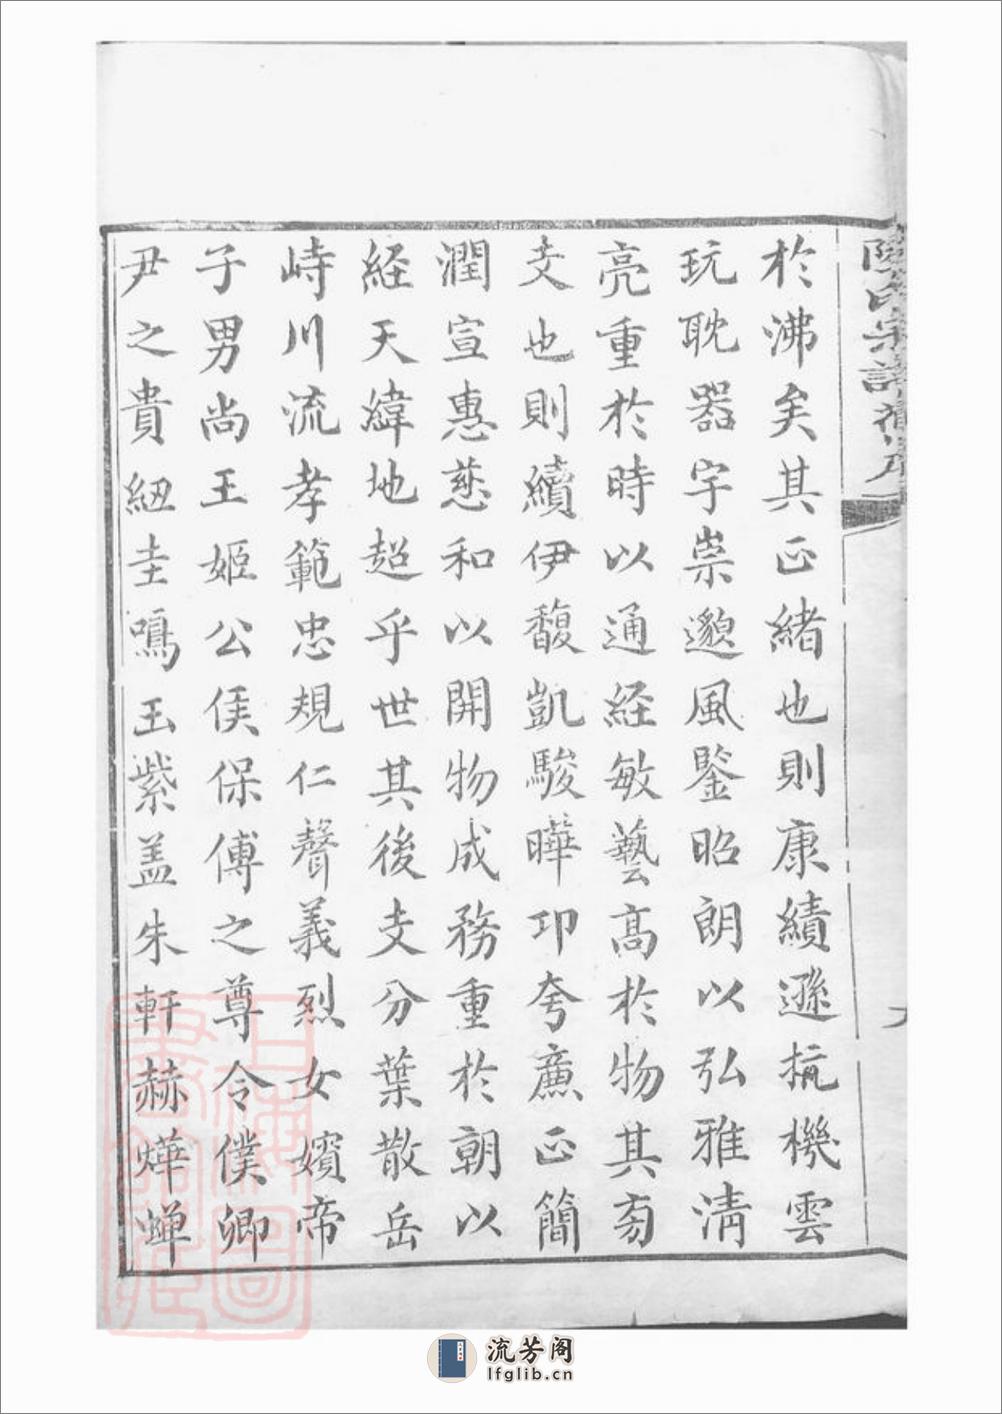 於沸矣其正緒也則康績遜抗機雲
玩耽器宇崇邈風鑒昭朗以弘雅清
亮重於時以通經敏藝高於物其旁
支也則續伊馥凱駿曄卭夸亷正簡
潤宣惠慈和以開物成務重於朝以
経天緯地超乎世其後支分葉散岳
峙川流孝範忠規仁聲義烈女嬪帝
子男尚王姬公侯保傅之尊令僕卿
尹之貴紐圭鳴玉紫盖朱軒赫燁蝉
上海圖書館藏
流芳阁
lfglib.cn